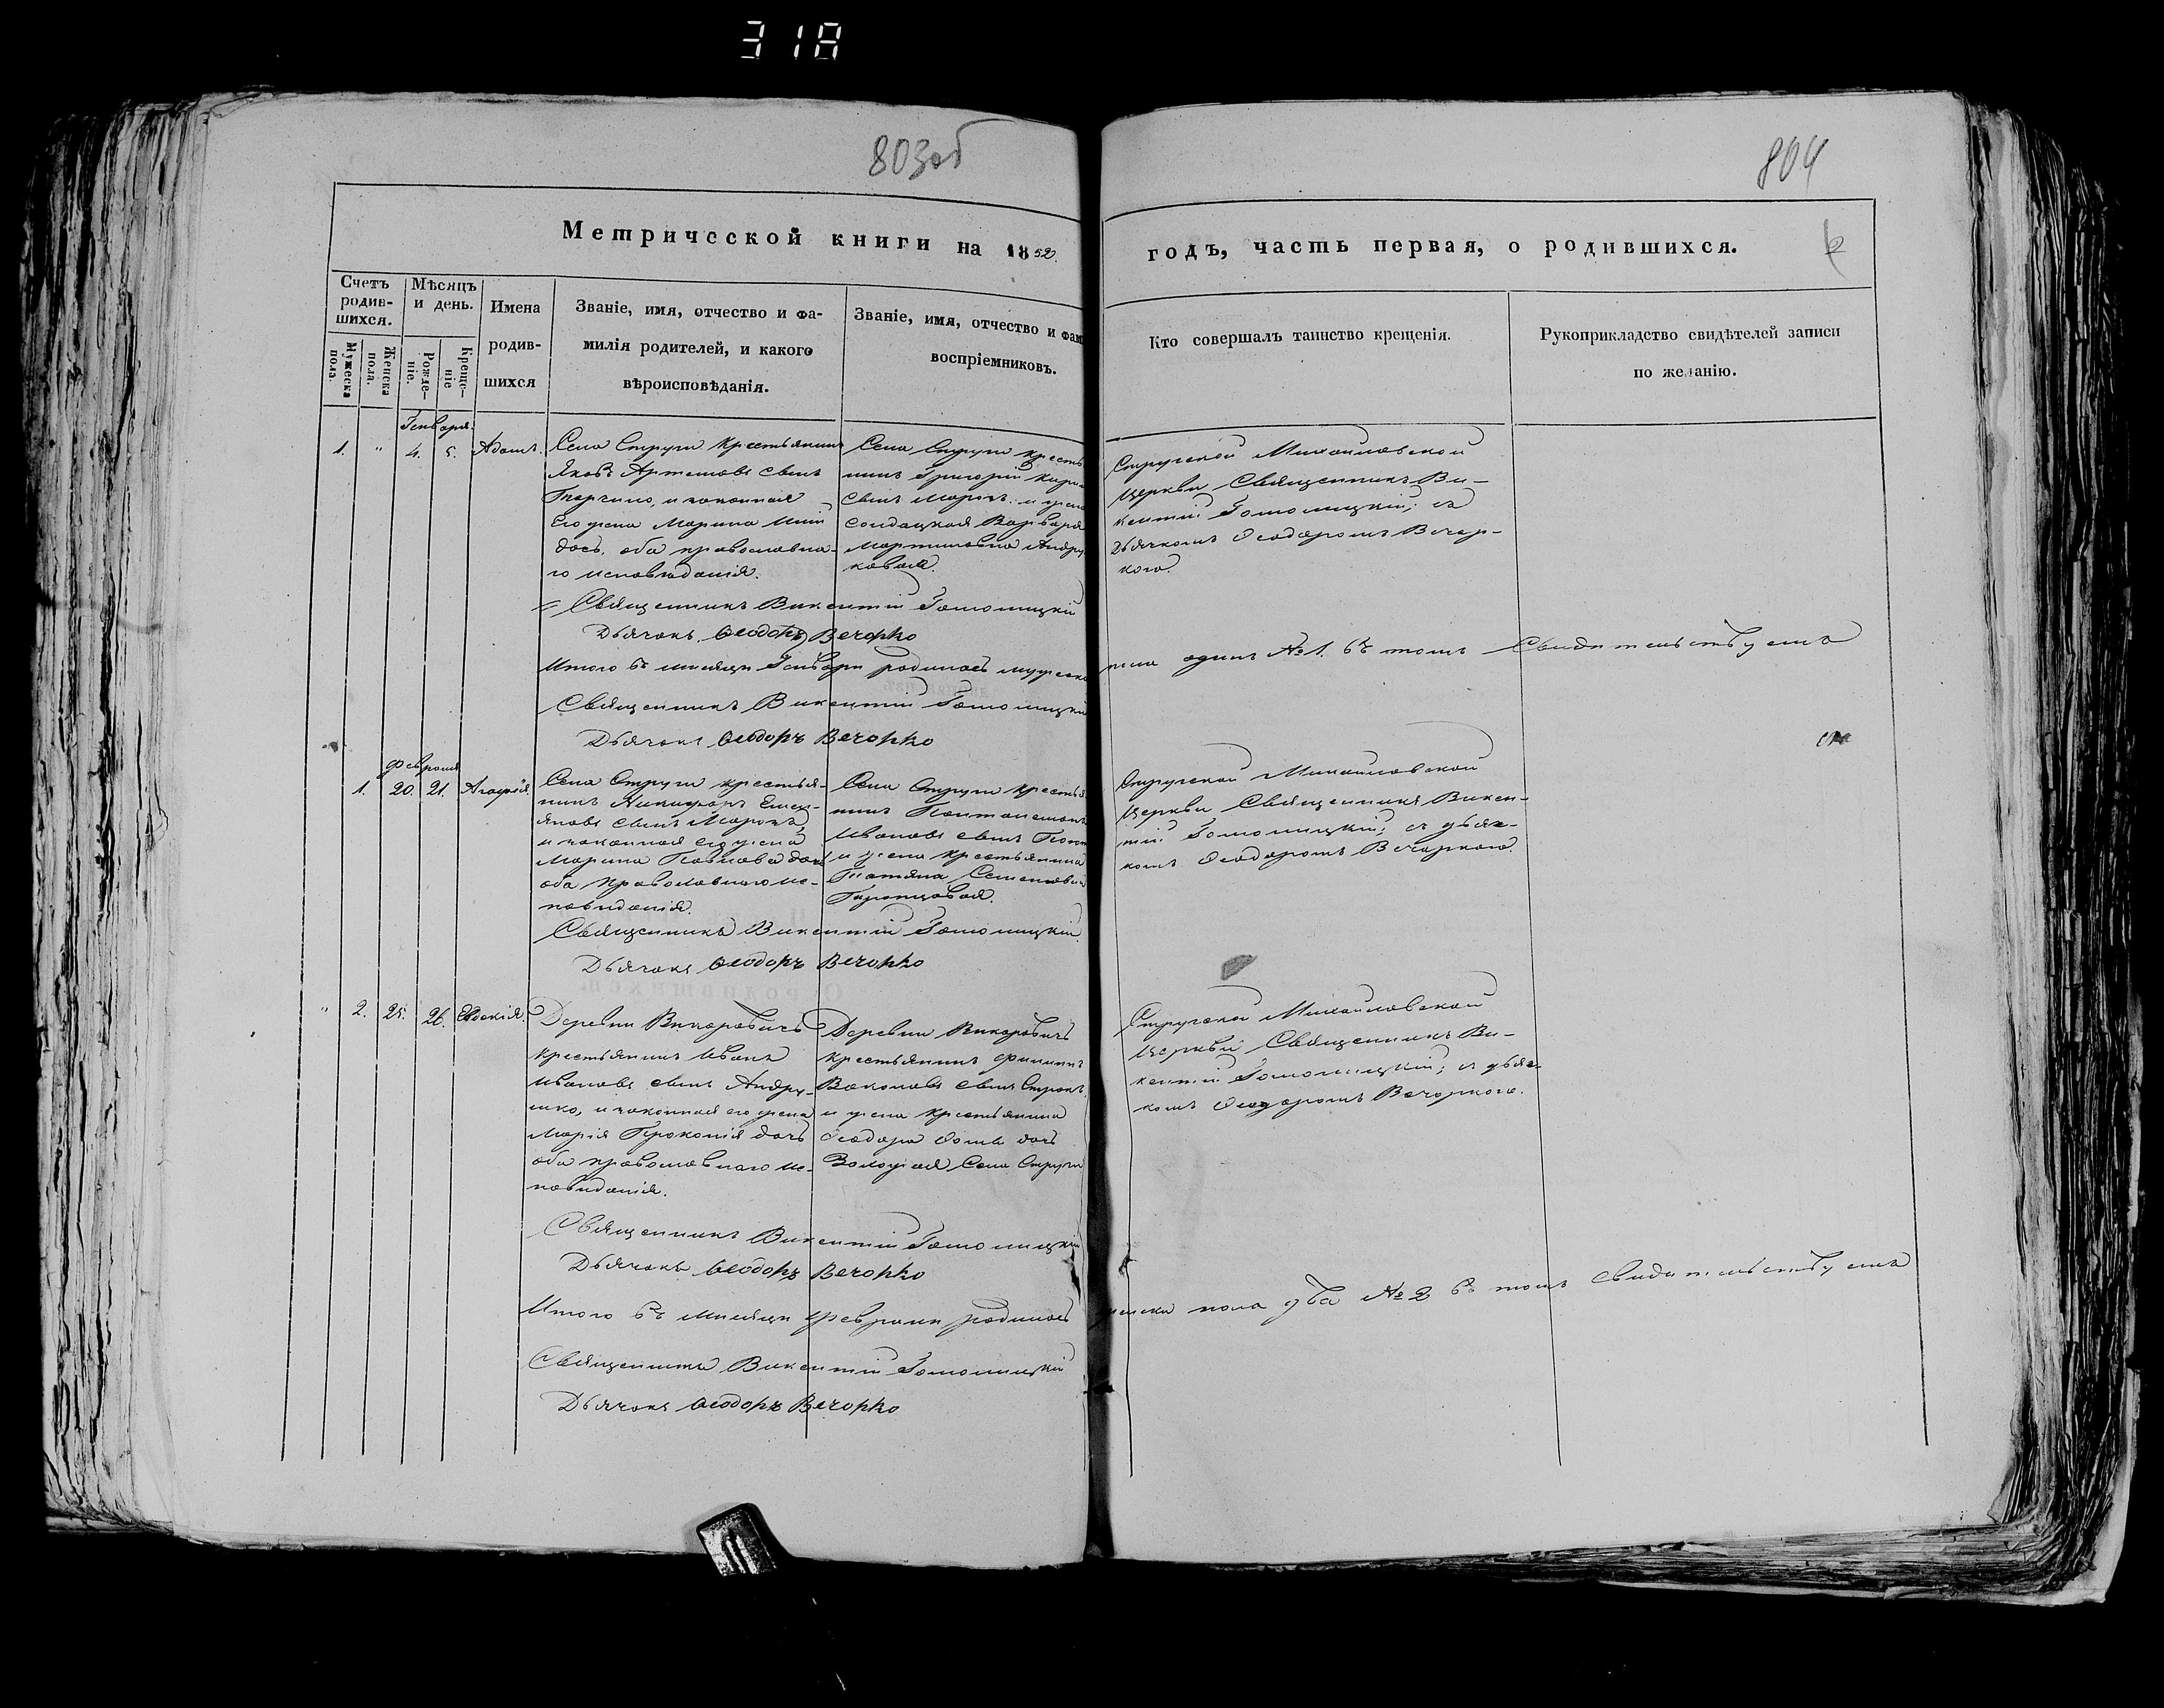 318
803об
804
Метрической книги на 1852.
годъ, часть первая, о родившихся.
2
Счетъ родив-шихся.
Мужеска пола.
Женска пола.
Мѣсяцъ и день.
Рожде-ніе.
Креще-ніе
Имена
родив-
шихся
Званіе, имя, отчество и фа-
милія родителей, и какого
вѣроисповѣданія.
Званіе, имя, отчество и фам
воспріемниковъ.
Кто совершалъ таинство крещенія.
Рукоприкладство свидѣтелей записи
по желанію.
Генваря
1. " 4. 5. Адамъ.
Села Струги Крестьянинъ
Яковъ Артемовъ сынъ
и законная
Его жена Марина
дочь, оба православна-
го исповѣданія.
Села Струги Кресть
нинъ Григорій
сынъ Морозъ и жена
солдацкая Варвара
Мартиновна Андру
кова.
Стружской Михайловской
Церкви Священникъ Ви-
кентій Гомолицкій; съ
Дьячкомъ Ѳеодоромъ Вечор-
кою.
Священникъ Викентій Гомолицкій
Дьячокъ Ѳеодоръ Вечорко
Итого въ мѣсяцѣ Генварѣ родилось мужеска
пола одинъ № 1. въ томъ Свидѣтельствуемъ
Священникъ Викентій Гомолицкій
Дьячокъ Ѳеодоръ Вечорко
Февраля
1. 20. 21. Агафія.
Села Струги крестья-
нинъ Никифоръ Емель-
яновъ сынъ Морозъ,
и законная его жена
Марина Павлова дочь
оба православного ис-
повѣданія.
Села Струги крестья
нинъ Пантелемонъ
Ивановъ сынъ
и жена крестьянина
Татяна Семеновна
Стружской Михайловской
Церкви Священникъ Викен-
тій Гомолицкій; съ дьяч-
комъ Ѳеодоромъ Вечоркою.
Священникъ Викентій Гомолицкій
Дьячокъ Ѳеодоръ Вечорко
" 2. 25. 26. Евдокія.
Деревни Викоровичъ
крестьянинъ Иванъ
Ивановъ сынъ Андру-
шко, и законная его жена
Марія Прокопія дочь
оба православного ис-
повѣданія.
Деревни Викоровичъ
крестьянинъ Филиппъ
сынъ
и жена крестьянина
Ѳеодора Ѳома дочь
Села Струги
Стружской Михайловской
Церкви Священникъ Ви-
кентій Гомолицкій; съ дьяч-
комъ Ѳеодоромъ Вечоркою.
Священникъ Викентій Гомолицкій
Дьячокъ Ѳеодоръ Вечорко
Итого въ мѣсяцѣ Февралѣ родилось
женска пола два № 2 въ томъ Свидѣтельствуемъ
Священникъ Викентій Гомолицкій
Дьячокъ Ѳеодоръ Вечорко